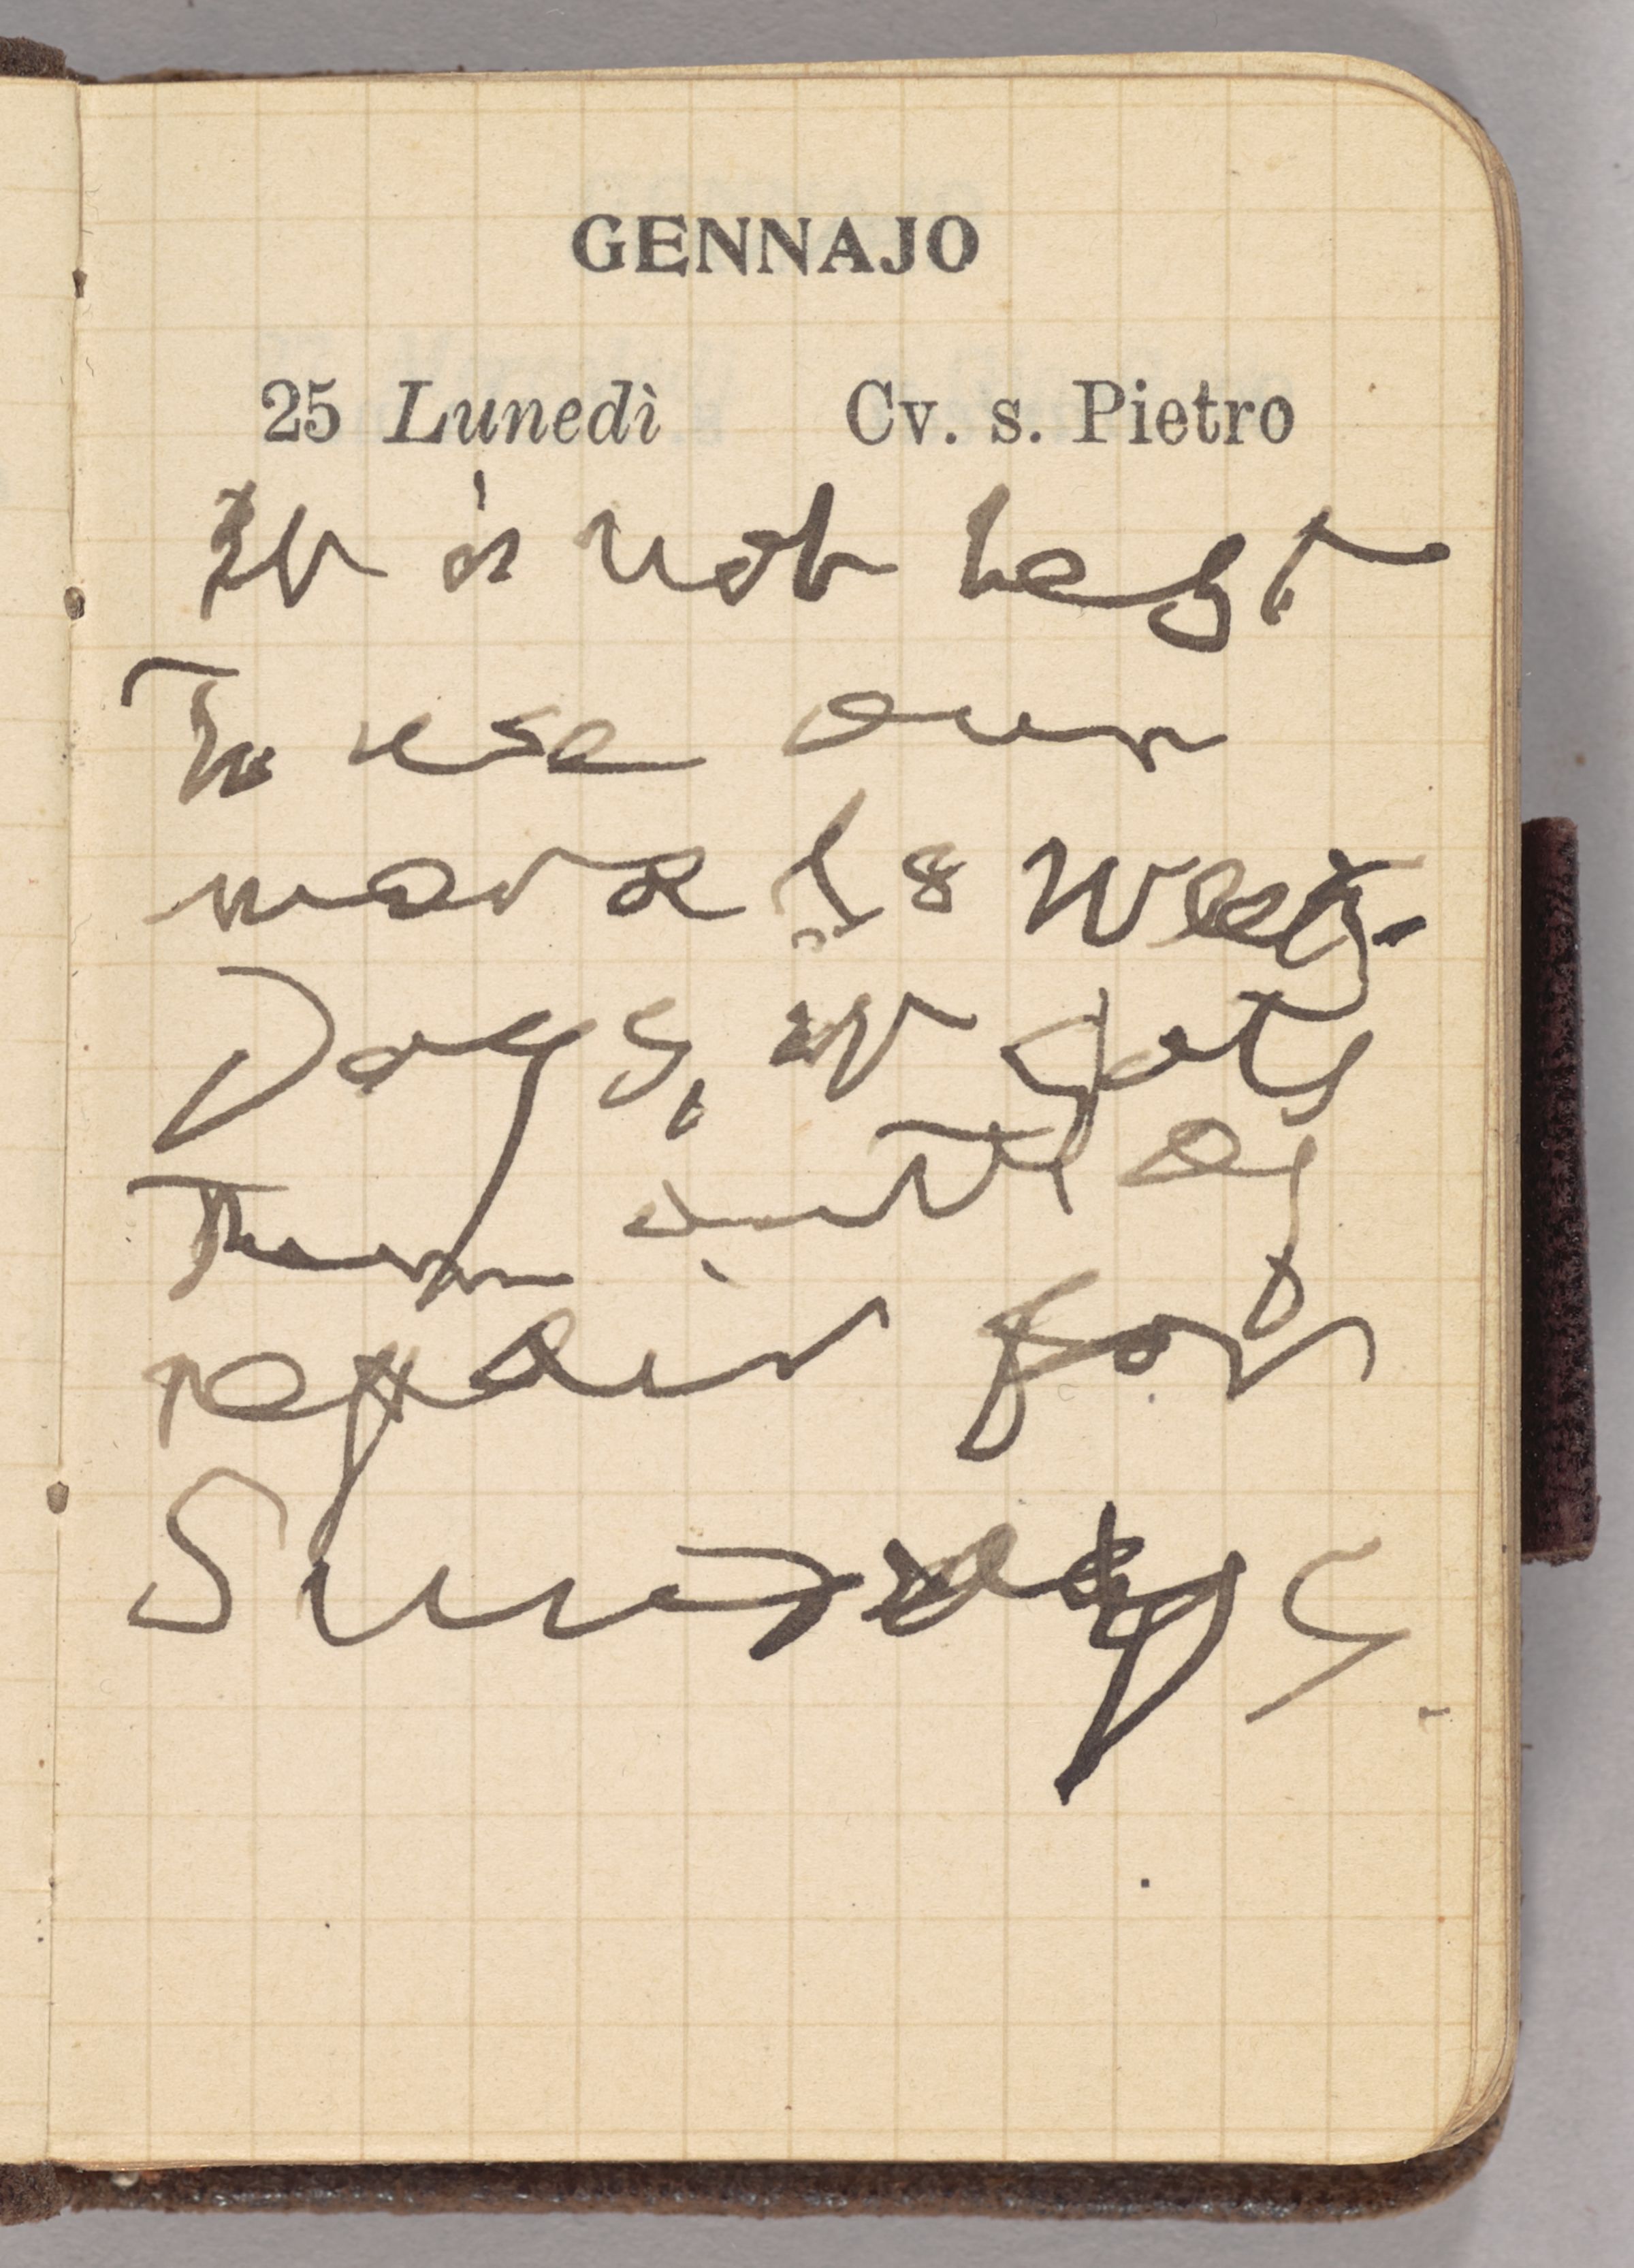 GENNAJO
25 Lunedì Cv. s. Pietro
It is not best
To use our
morals week-
Days, it gets
Them out of
repair for
Sundays.